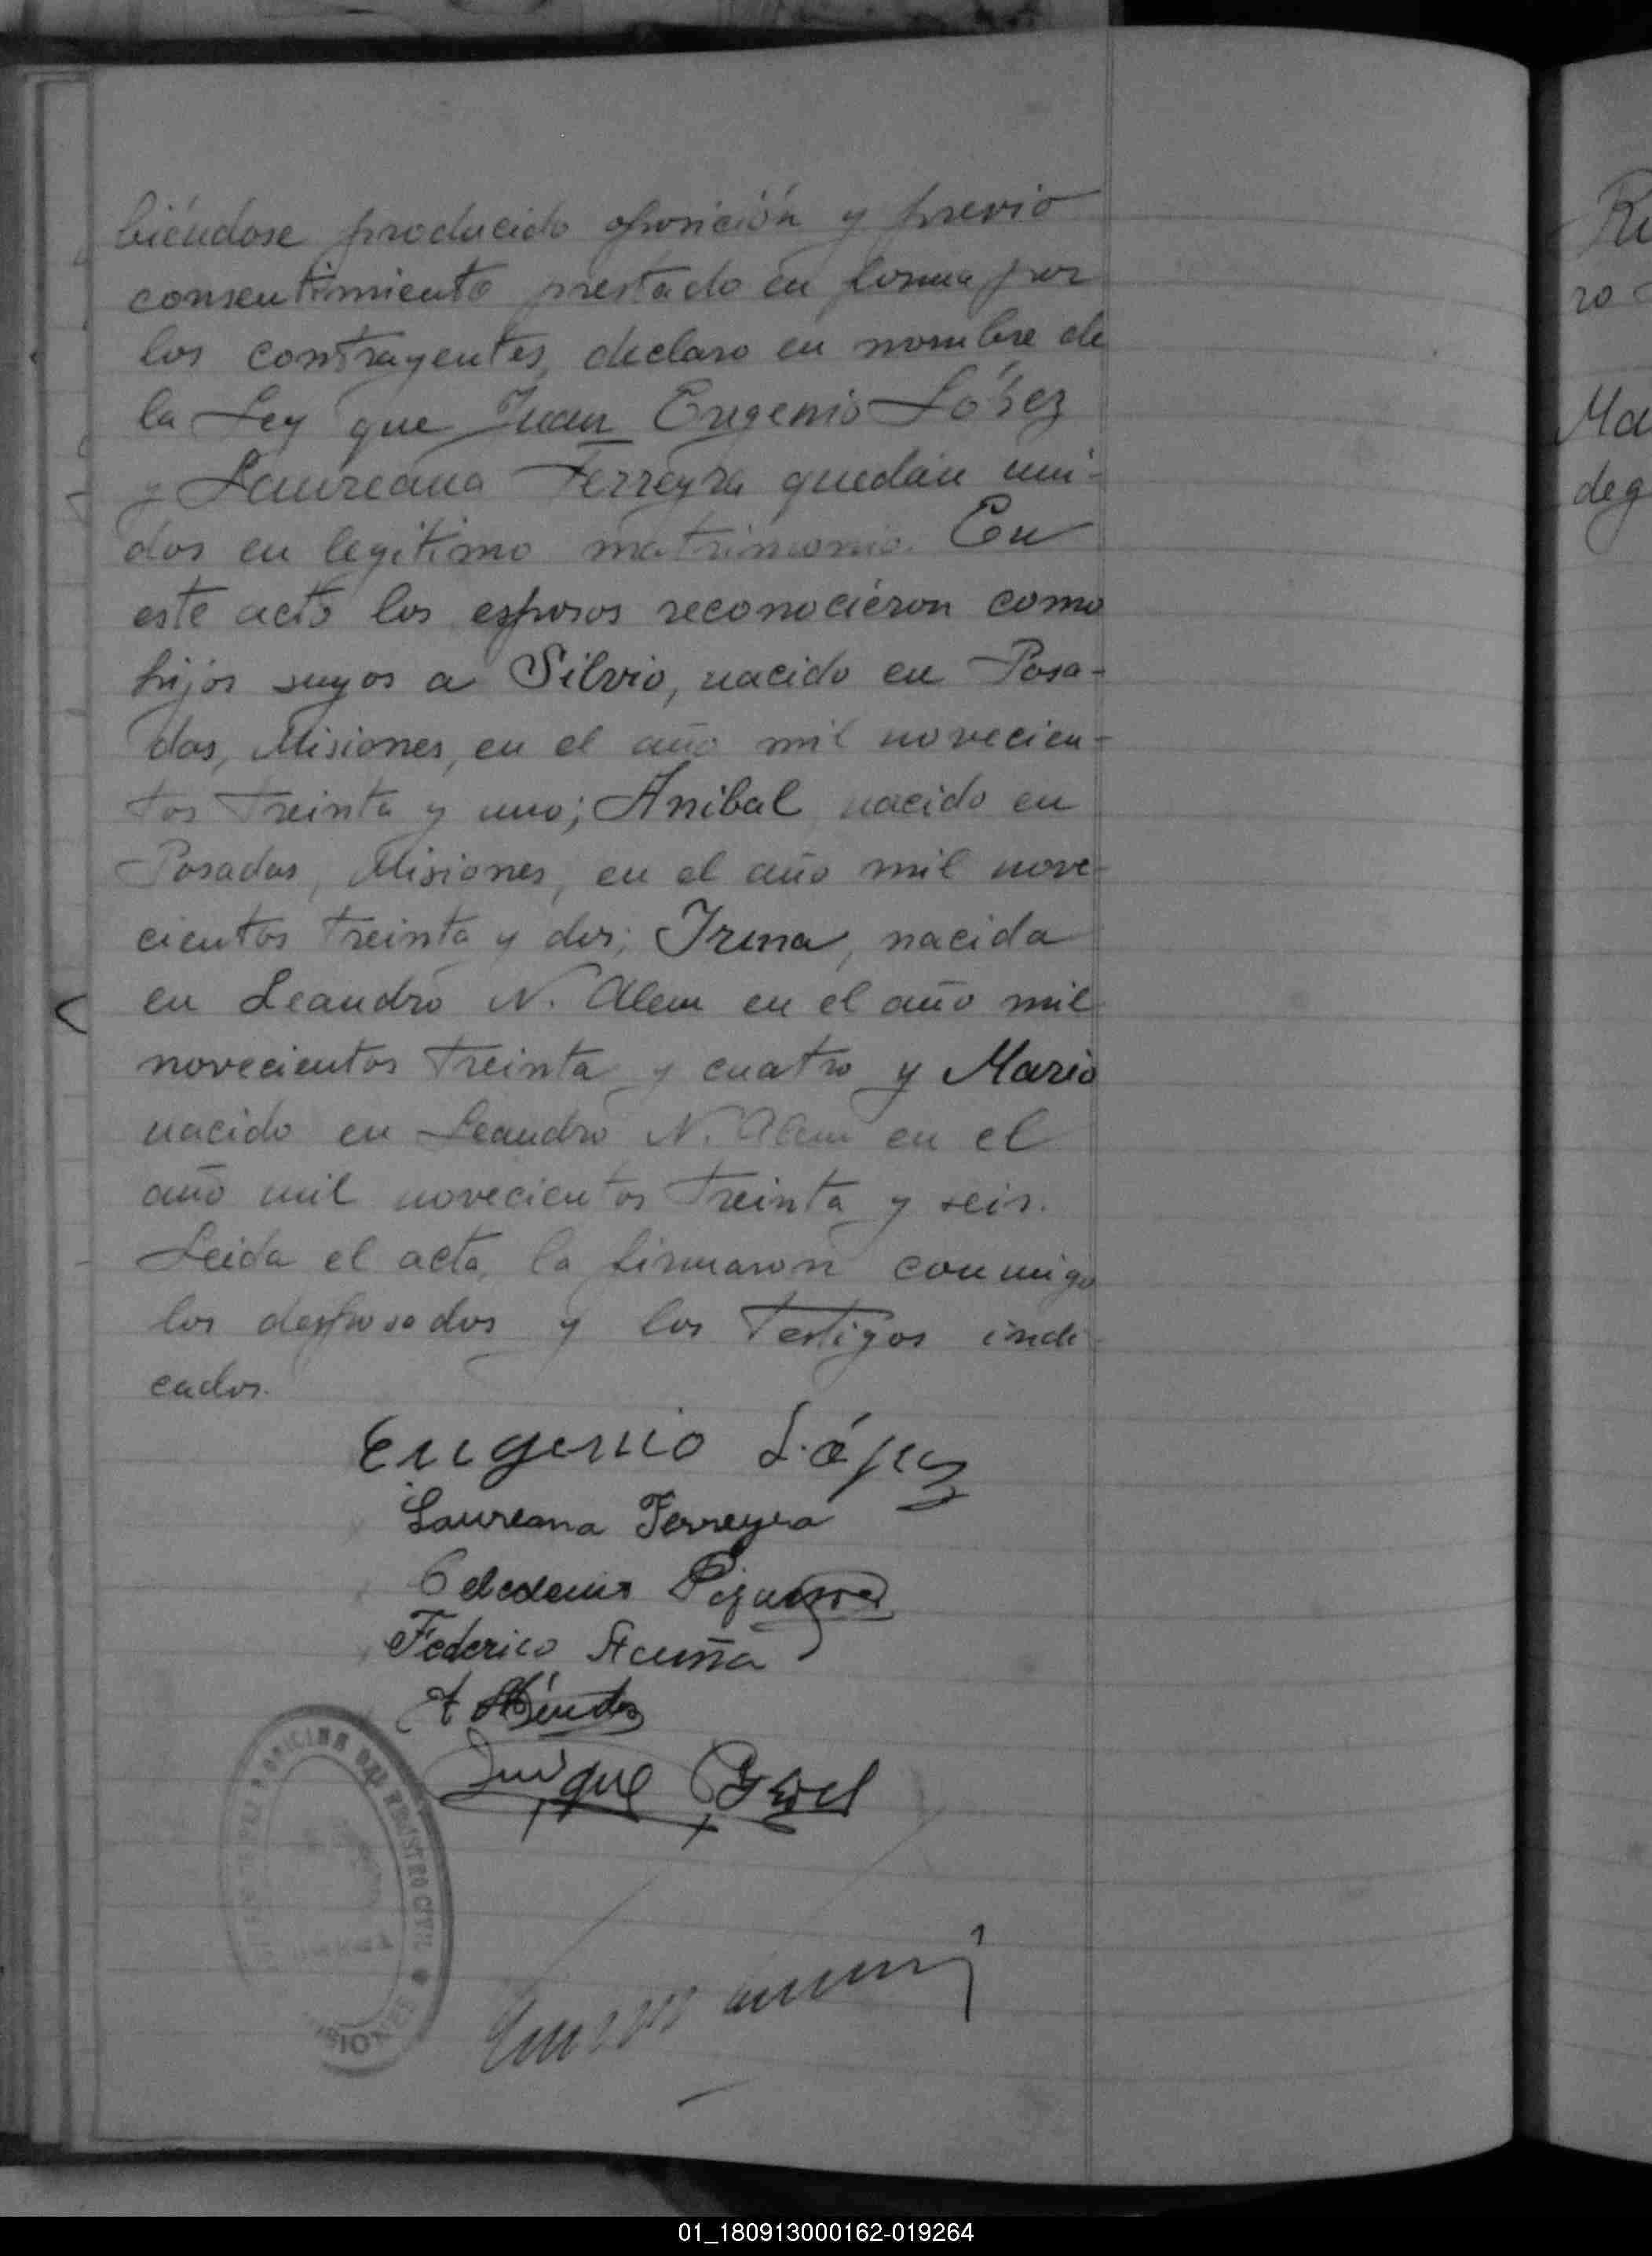 biéndose producido oposición y previo
consentimiento prestado en forma por
los contrayentes, declaro en nombre de
la Ley que Juan Eugenio López
y Laureana Ferreyra quedan uni-
dos en legítimo matrimonio. En
este acto los esposos reconocieron como
hijos suyos a Silvio, nacido en Posa-
das, Misiones, en el año mil novecien-
tos treinta y uno; Anibal nacido en
Posadas, Misiones, en el año mil nove-
cientos treinta y dos; Irma, nacida
en Leandro N. Alem en el año mil
novecientos treinta y cuatro y Mario
nacido en Leandro N. Alem en el
año mil novecientos treinta y seis.
Leida el acta, la firmaron conmigo
los desposados y los testigos indi-
cados.
Eugenio López
Laureana Ferreyra
Federico Acuña
OFICINA DEL REGISTRO CIVIL
MISIONES
Ma
deg
01_180913000162-019264